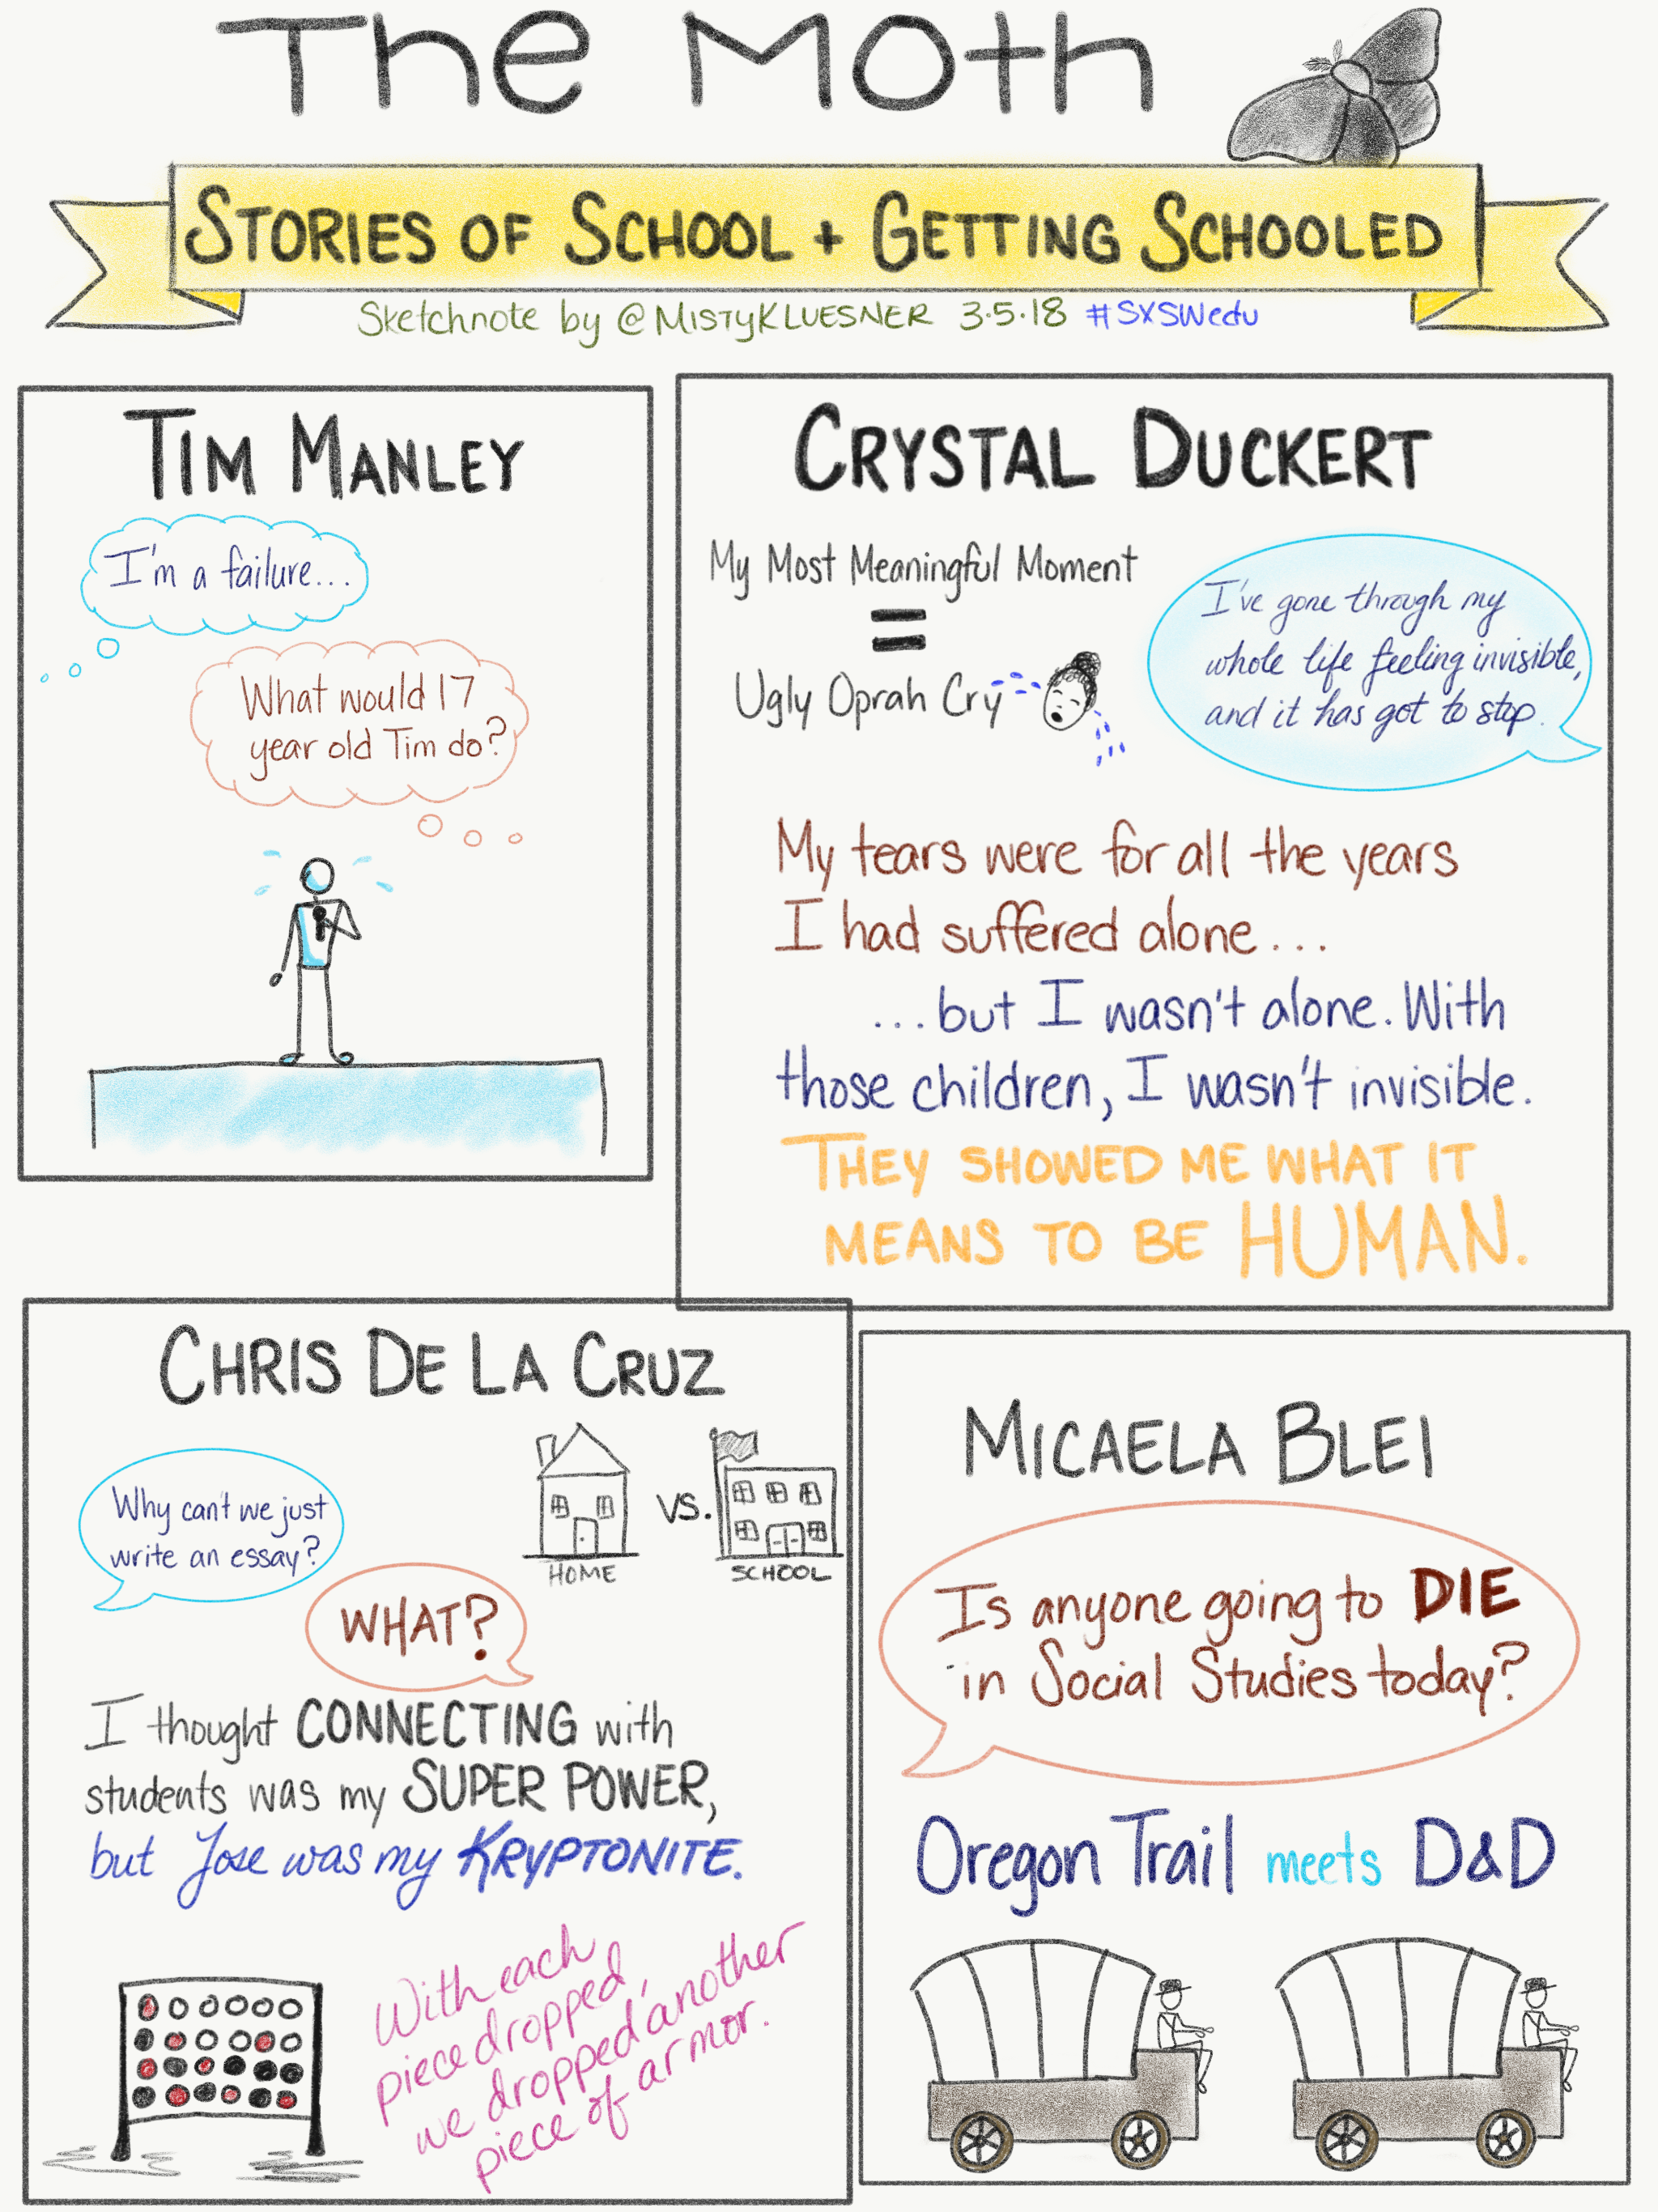 The Moth
STORIES OF SCHOOL + GETTING SCHOOLED
Sketchnote by @MISTYKLUESNER 3.5.18 #SXSWedu
TIM MANLEY
I'm a failure...
What would 17
year old Tim do?
CRYSTAL DUCKERT
My Most Meaningful Moment
=
Ugly Oprah Cry
I've gone through my
whole life feeling invisible,
and it has got to stop.
My tears were for all the years
I had suffered alone...
...but I wasn't alone. With
those children, I wasn't invisible.
THEY SHOWED ME WHAT IT
MEANS TO BE HUMAN.
CHRIS DE LA CRUZ
Why can't we just
write an essay?
WHAT?
VS.
HOME
SCHOOL
I thought CONNECTING with
students was my SUPER POWER,
but Jose was my KRYPTONITE.
With each
piece dropped,
we dropped another
piece of armor.
MICAELA BLEI
Is anyone going to DIE
in Social Studies today?
Oregon Trail meets D&D